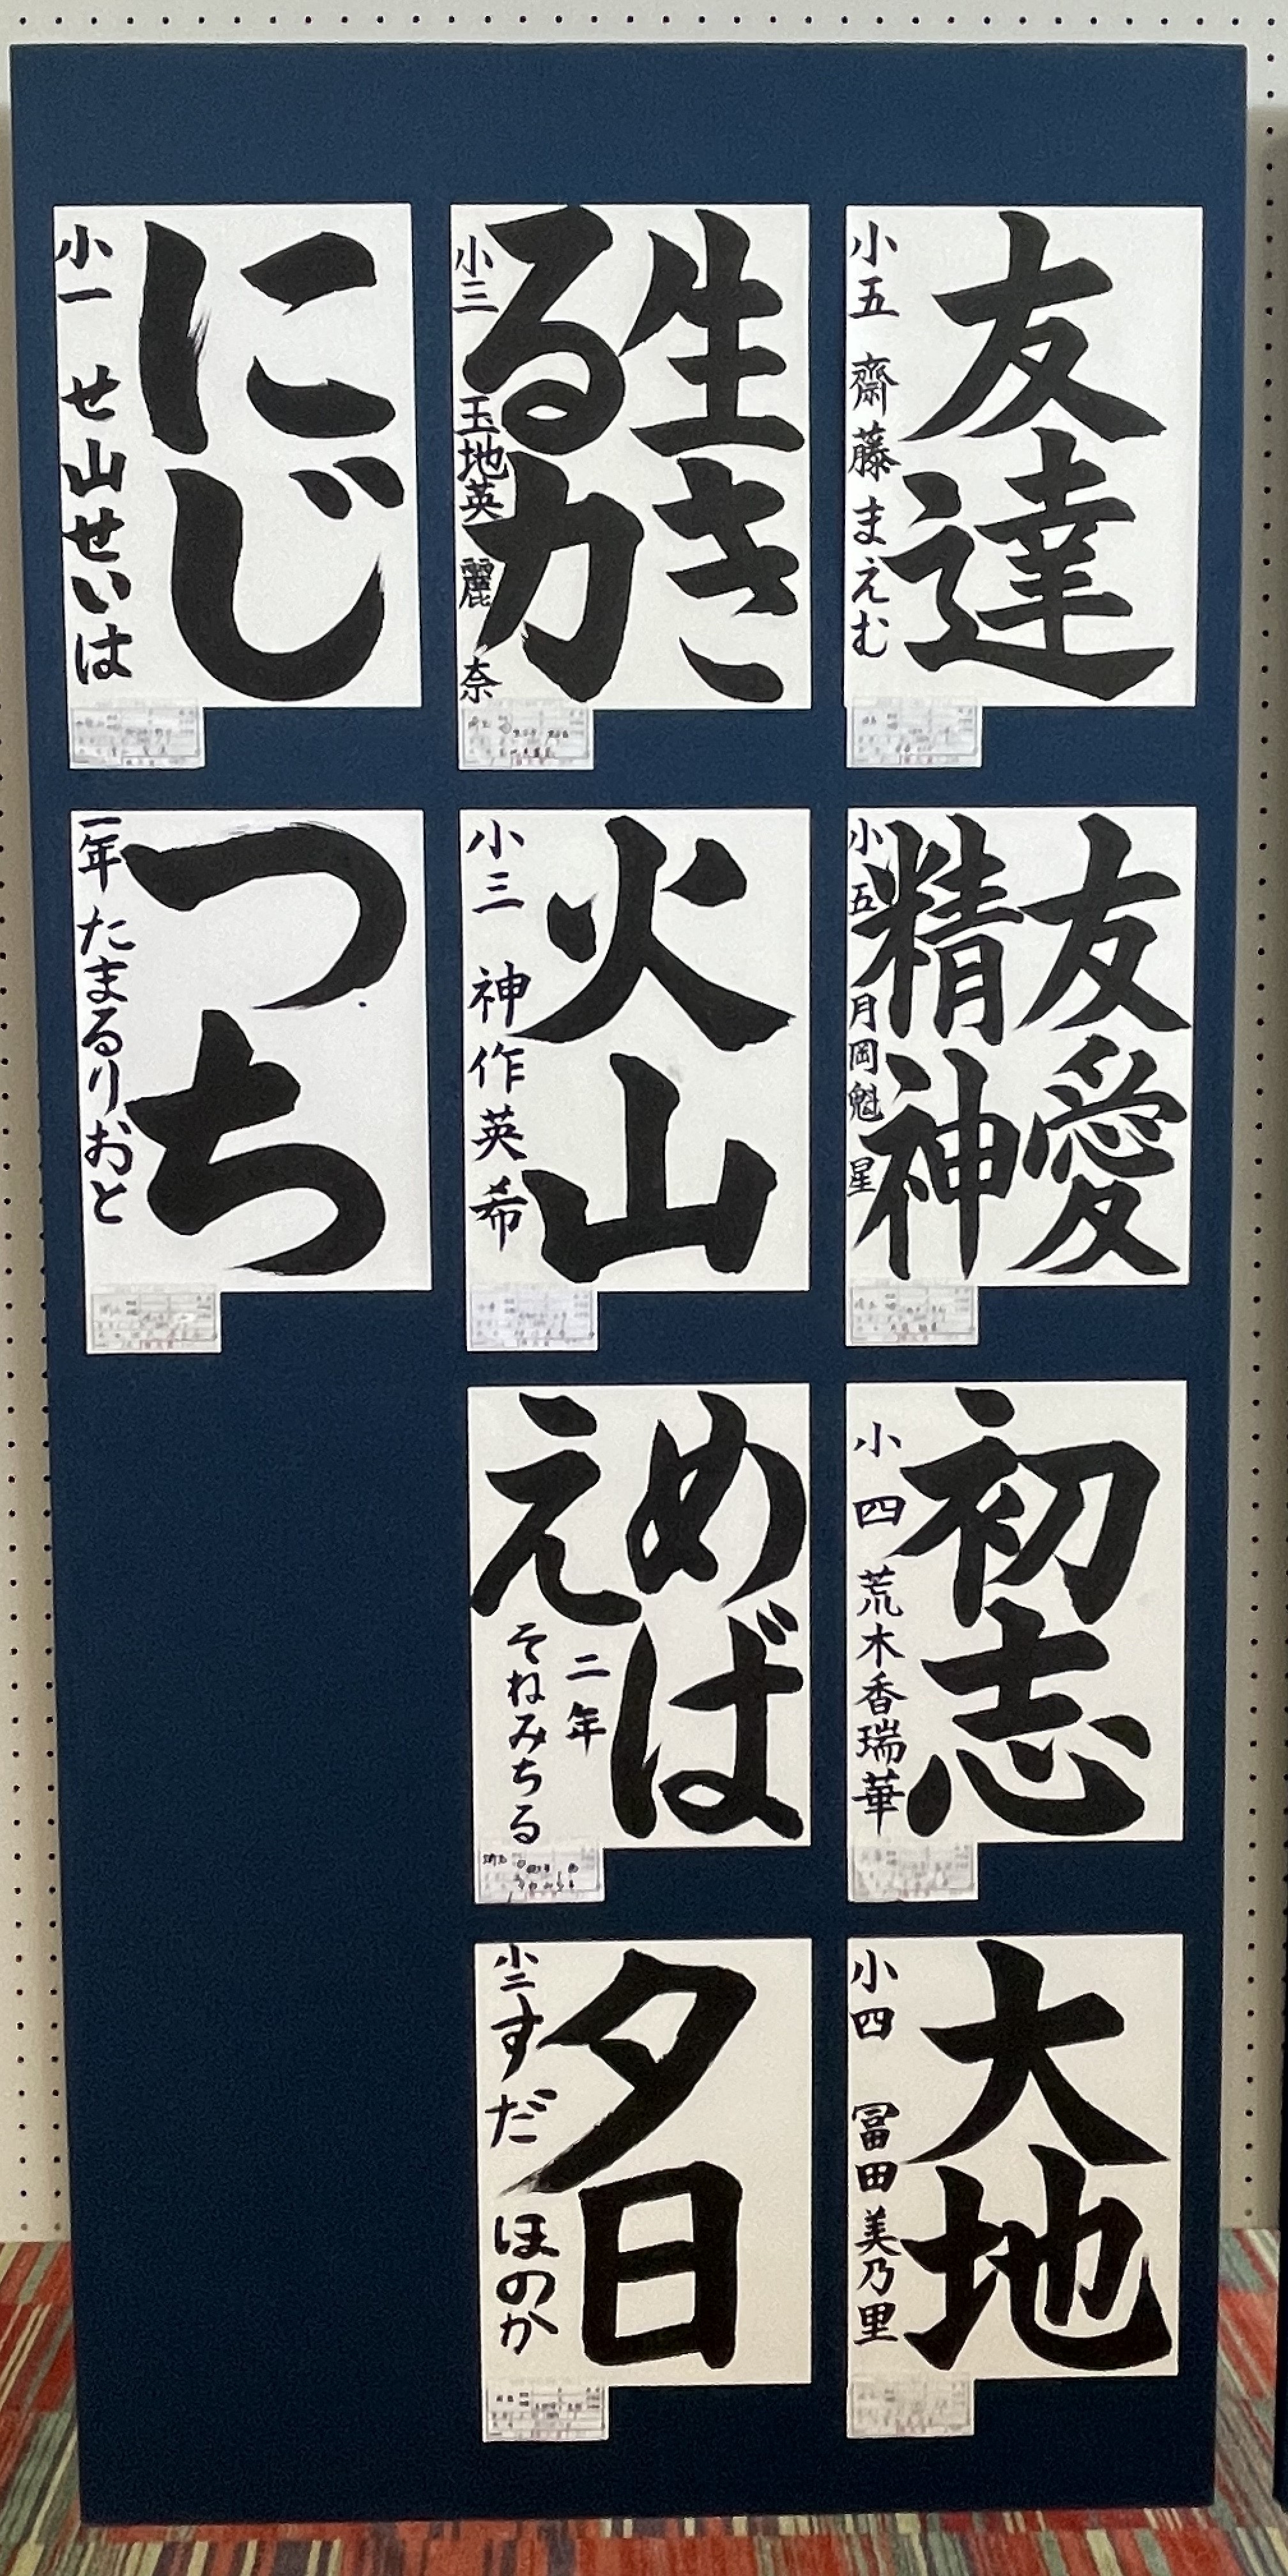 友達
小五 齋藤まえむ
友愛
精神
小五 月岡魁星
初志
小四 荒木香瑞華
大地
小四 冨田美乃里
生き
る力
小三 玉地英麗奈
火山
小三 神作英希
めば
え
二年
そねみちる
夕日
小二 すだ ほのか
にじ
小一 せ山せいは
つち
一年 たまるりおと